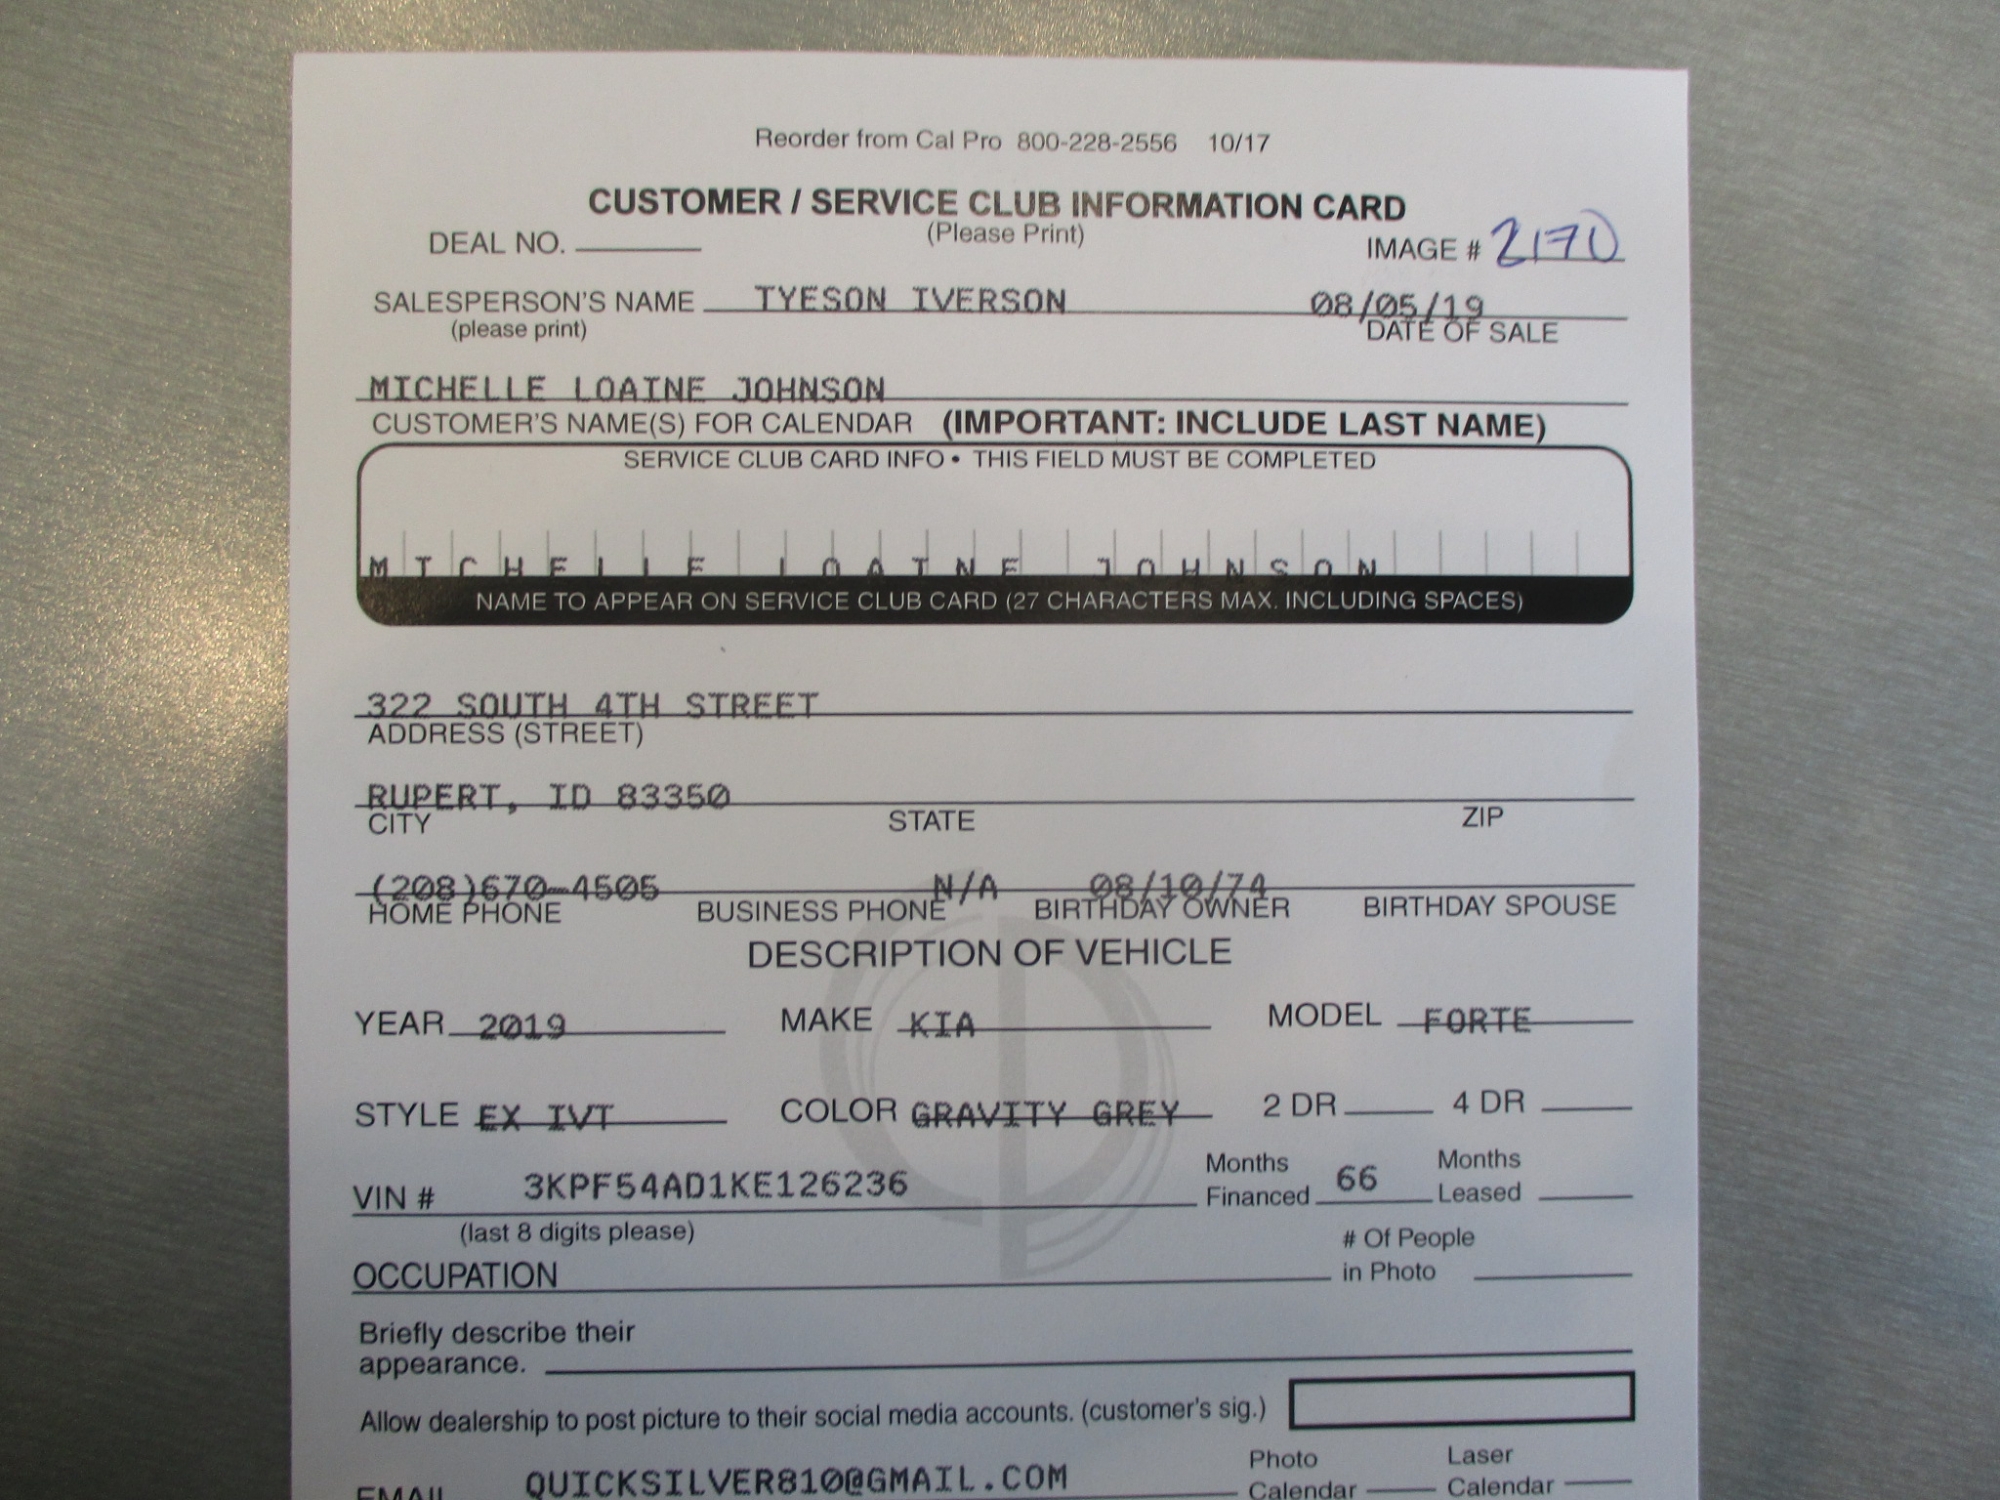 Reorder from Cal Pro 800-228-2556 10/17
CUSTOMER / SERVICE CLUB INFORMATION CARD
DEAL NO. (Please Print) IMAGE # 2170
SALESPERSON'S NAME TYESON IVERSON 08/05/19
(please print) DATE OF SALE
MICHELLE LOAINE JOHNSON
CUSTOMER'S NAME(S) FOR CALENDAR (IMPORTANT: INCLUDE LAST NAME)
SERVICE CLUB CARD INFO • THIS FIELD MUST BE COMPLETED
MICHELLE LOAINE JOHNSON
NAME TO APPEAR ON SERVICE CLUB CARD (27 CHARACTERS MAX. INCLUDING SPACES)
322 SOUTH 4TH STREET
ADDRESS (STREET)
RUPERT, ID 83350
CITY STATE ZIP
(208)670-4505 N/A 08/10/74
HOME PHONE BUSINESS PHONE BIRTHDAY OWNER BIRTHDAY SPOUSE
DESCRIPTION OF VEHICLE
YEAR 2019 MAKE KIA MODEL FORTE
STYLE EX IVT COLOR GRAVITY GREY 2 DR 4 DR
VIN # 3KPF54AD1KE126236 Months Financed 66 Months Leased
(last 8 digits please)
OCCUPATION # Of People in Photo
Briefly describe their
appearance.
Allow dealership to post picture to their social media accounts. (customer's sig.)
EMAIL QUICKSILVER810@GMAIL.COM Photo Calendar Laser Calendar